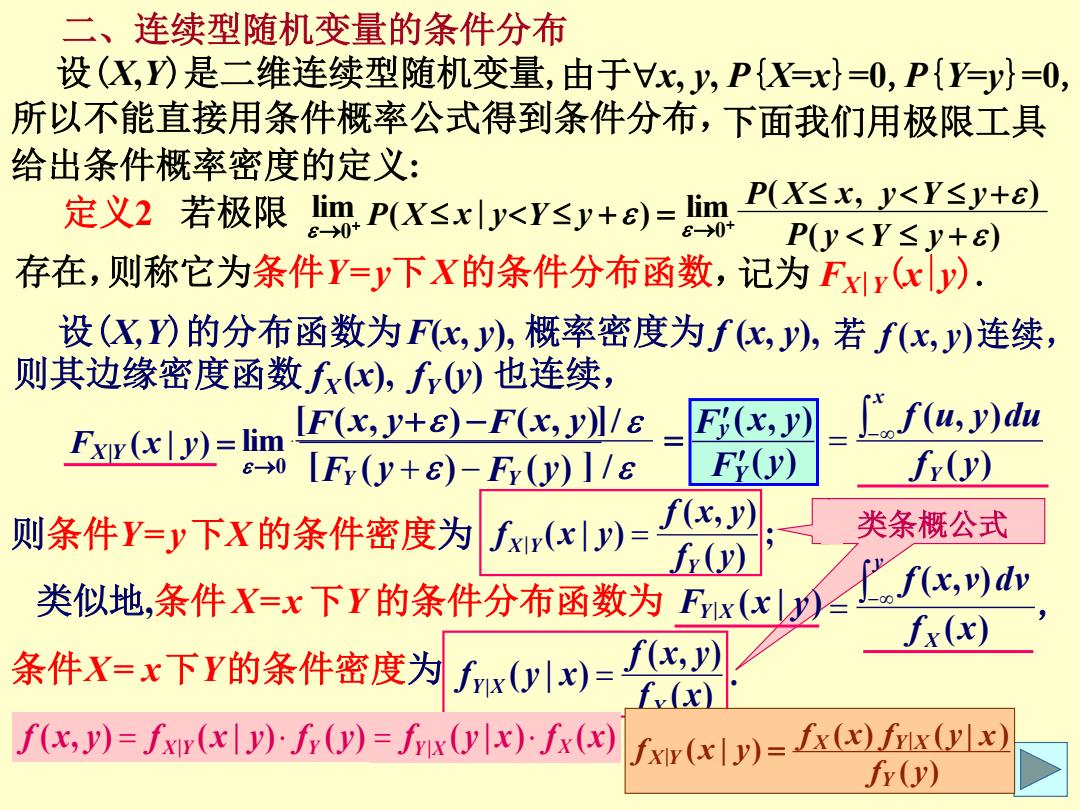 二、连续型随机变量的条件分布
设(X,Y)是二维连续型随机变量,由于∀x, y, P{X=x}=0, P{Y=y}=0,
所以不能直接用条件概率公式得到条件分布，下面我们用极限工具
给出条件概率密度的定义:
定义2 若极限 lim_{ε→0⁺} P(X≤x|y<Y≤y+ε) = lim_{ε→0⁺} P(X≤x, y<Y≤y+ε) / P(y<Y≤y+ε)
存在，则称它为条件Y=y下X的条件分布函数，记为 F_{X|Y}(x|y).
设(X,Y)的分布函数为F(x, y), 概率密度为f (x, y), 若 f(x, y)连续，
则其边缘密度函数 f_X(x), f_Y(y) 也连续，
F_{X|Y}(x|y) = lim_{ε→0} [F(x, y+ε)−F(x, y)]/ε / [F_Y(y+ε)−F_Y(y)]/ε = F′_y(x, y) / F′_Y(y) = ∫_{−∞}^{x} f(u, y)du / f_Y(y)
则条件Y=y下X的条件密度为 f_{X|Y}(x|y) = f(x, y) / f_Y(y) ;
类条概公式
类似地,条件X=x下Y的条件分布函数为 F_{Y|X}(x|y) = ∫_{−∞}^{y} f(x,v)dv / f_X(x) ,
条件X=x下Y的条件密度为 f_{Y|X}(y|x) = f(x, y) / f_X(x) .
f(x, y) = f_{X|Y}(x|y)· f_Y(y) = f_{Y|X}(y|x)· f_X(x)
f_{X|Y}(x|y) = f_X(x) f_{Y|X}(y|x) / f_Y(y)